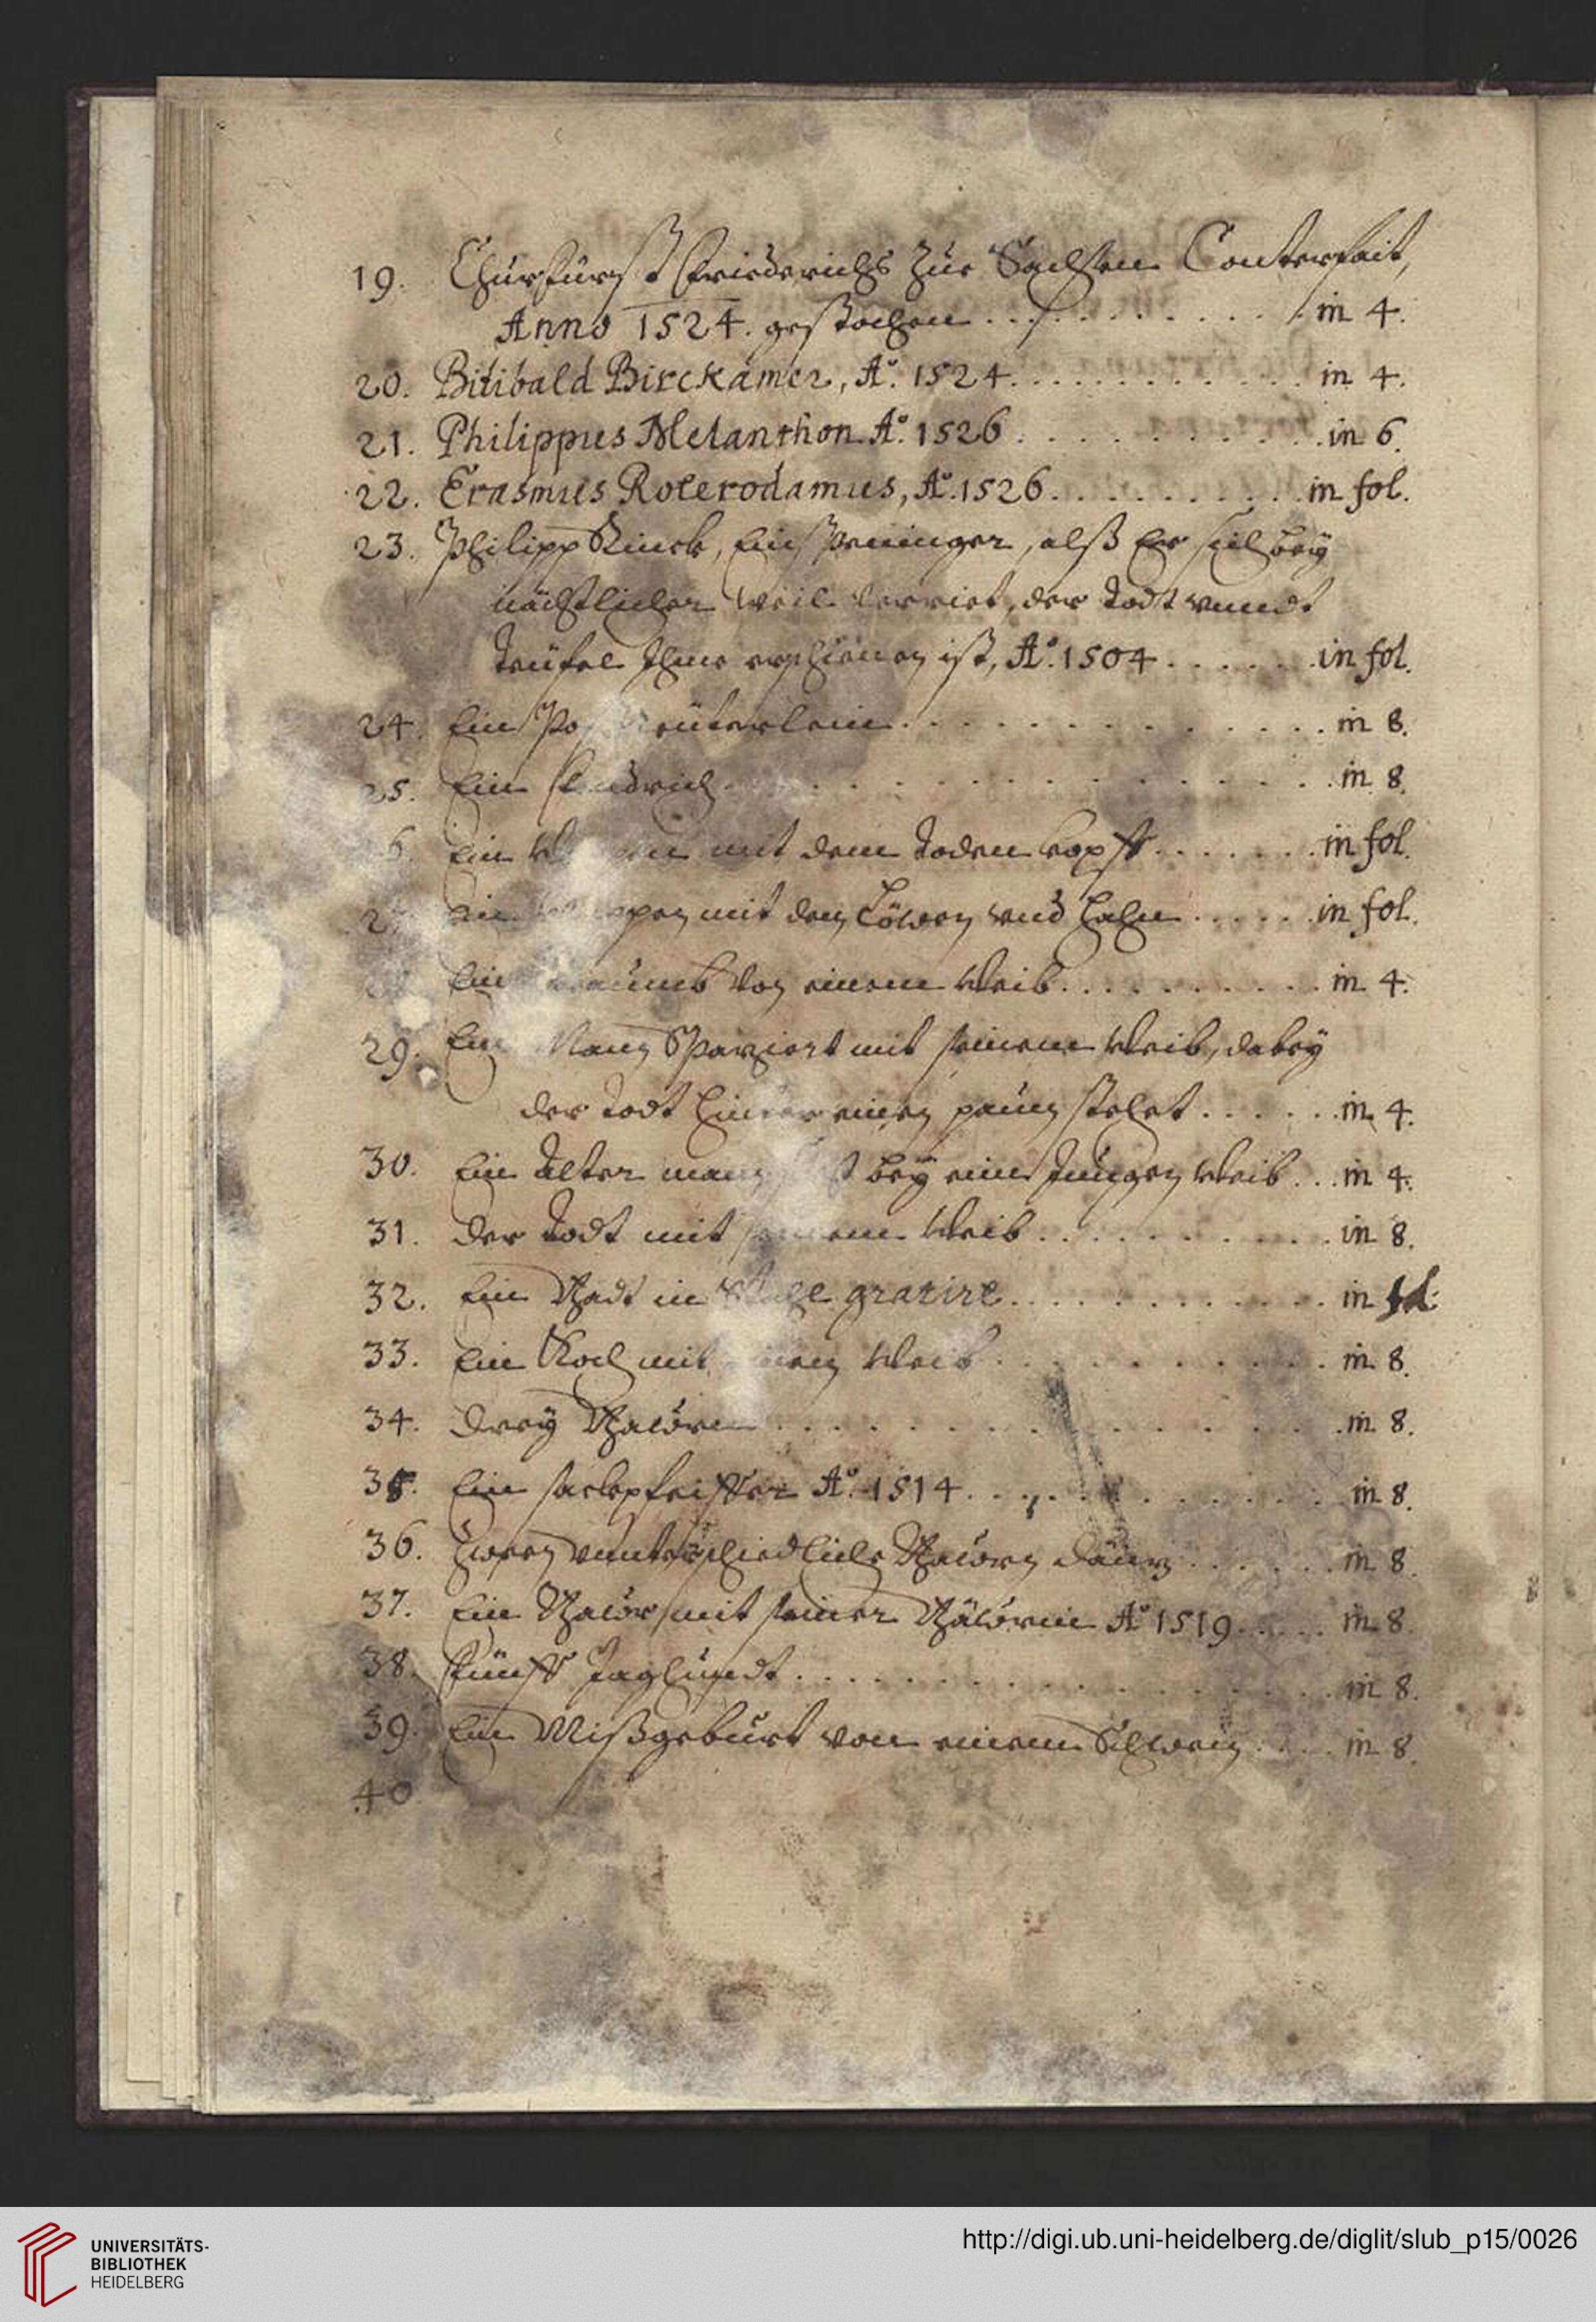 19. Churfürst Friederichs zue Sachsen Conterfait,
Anno 1524. gestochen . . . . . . . . . . in 4.
20. Bilibald Birckamer, Aº. 1524. . . . . . . . . . . in 4.
21. Philippus Melanthon Aº. 1526 . . . . . . . . . . in 6.
22. Erasmus Roterodamus, Aº. 1526. . . . . . . . . in fol.
23. Philipp Rinck, Ein, alß Er sich bey
nächtlicher Weil verriet, der Todt vnndt
Teüfel Ihme erschienen ist, Aº. 1504 . . . . . . in fol.
24. Ein Po eüterlein . . . . . . . . . . . . . . in 8.
25. Ein drich . . . . . . . . . . . . . . . . in 8.
6. Ein mit dem Todenkopff . . . . . . . in fol.
2 Ein ppen mit den Löwen vnd Hahn . . . . . in fol.
Ein von einem Weib . . . . . . . . . . in 4.
29. Ein Mann Spaziert mit seinem Weib, dabey
der Todt hinder einen paum stehet . . . . . in 4.
30. Ein Alter mann bey eim Jungen Weib . . in 4.
31. Der Todt mit einem Weib . . . . . . . . . . in 8.
32. Ein Radt in gratirt . . . . . . . . . . . in
33. Ein Koch mit Weib . . . . . . . . . . . in 8.
34. Drey Bawren . . . . . . . . . . . . . . . . in 8.
35. Ein sackpfeiffer Aº. 1514 . . . . . . . . . . . in 8.
36. Zween vnnterschiedliche Bawren . . . . . in 8.
37. Ein Bawr mit seiner Bäwrin Aº 1519 . . . . in 8.
38. Fünff Jaghundt . . . . . . . . . . . . . . in 8.
39. Ein Mißgeburt von einem Schwein . . . . in 8.
40
UNIVERSITÄTS-
BIBLIOTHEK
HEIDELBERG
http://digi.ub.uni-heidelberg.de/diglit/slub_p15/0026